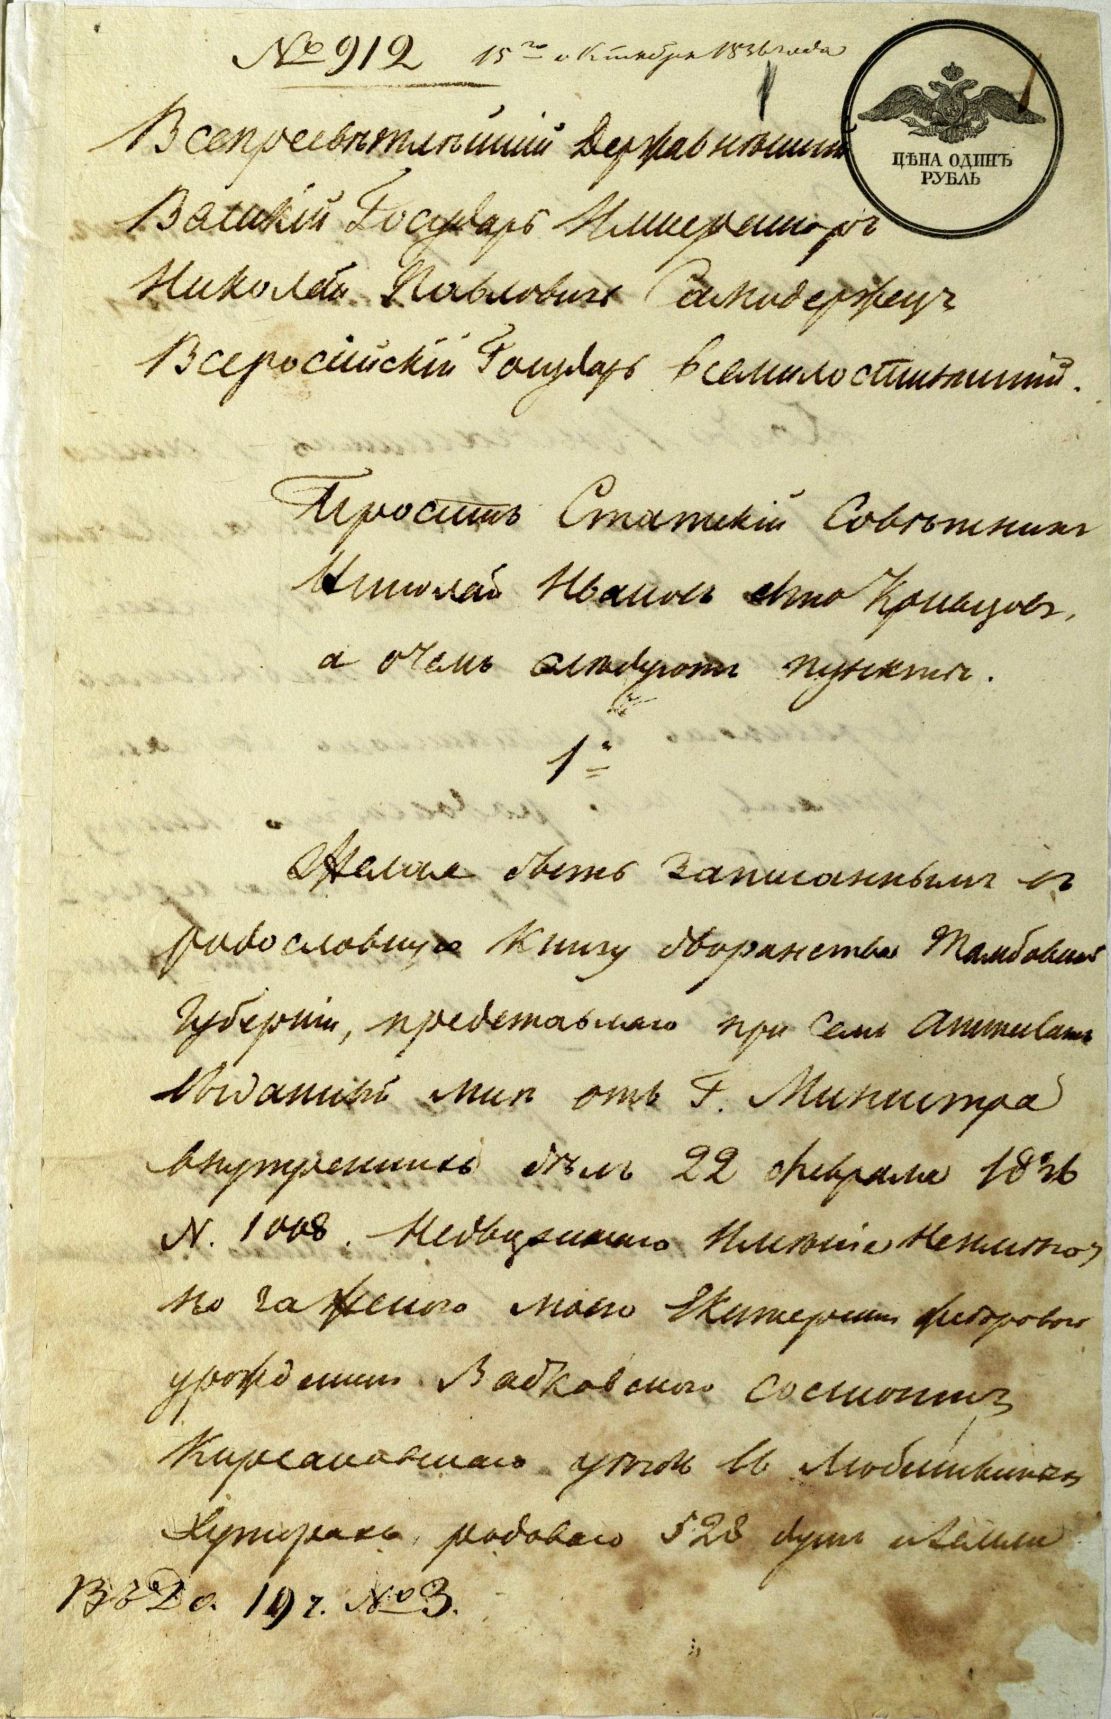 № 912 15го октября 1836 года
ЦѢНА ОДИНЪ
РУБЛЬ
Всепресвѣтлѣйшій Державнѣйшій
Великій Государь Императоръ
Николай Павловичь Самодержецъ
Всеросiйскій Государь всемилостивѣйшій.
Проситъ Статскій Совѣтникъ
Николай Ивановъ сынъ Кривцовъ,
а очемъ слѣдуютъ пункты.
1е
Желая быть записаннымъ въ
родословную книгу дворянства Тамбовской
Губерніи, представляю при семъ аттестатъ
выданный мнѣ отъ Г. Министра
внутреннихъ дѣлъ 22 февраля 1836
N. 1008. Недвижимаго имѣнія неимѣю,
но за женою моею Екатериною Федоровою
урожденною Вадковскою состоитъ
Кирсановскаго уѣзда въ Любичевскихъ
Хуторахъ родоваго 528 душъ и земли
Въ До. 19 г. № 3.